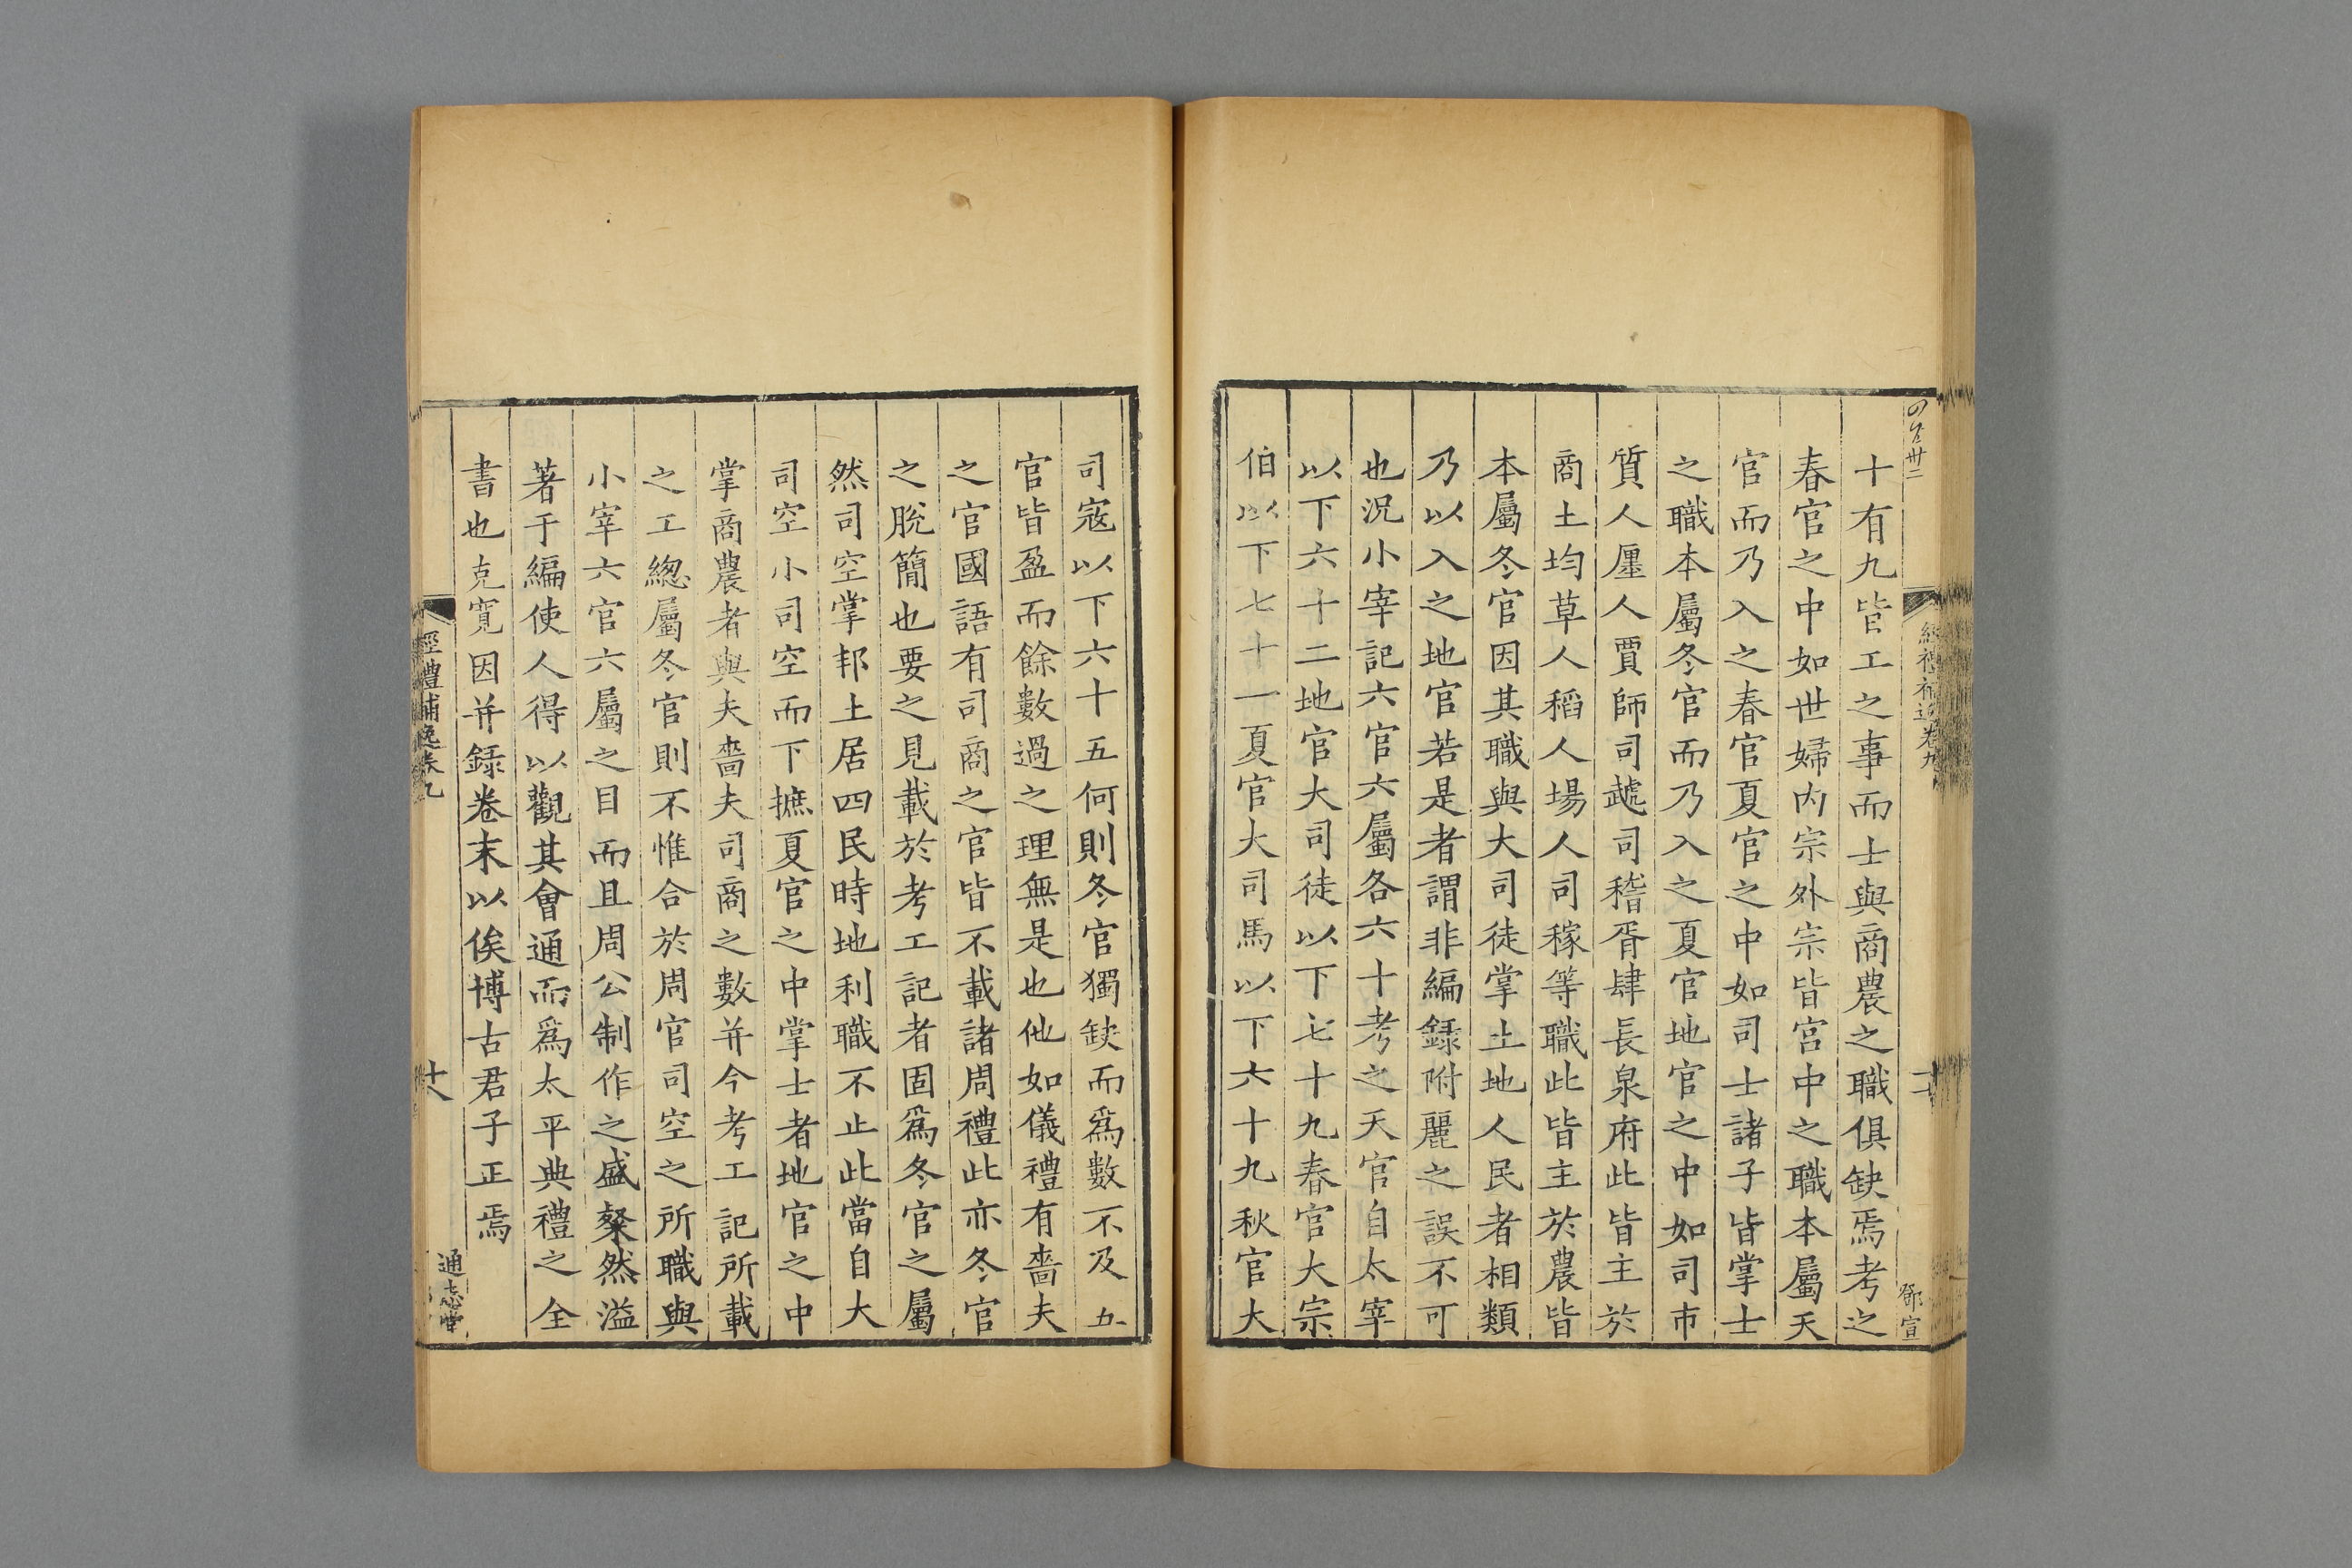 十有九皆工之事而士與商農之職俱缺焉考之
春官之中如世婦内宗外宗皆宫中之職本屬天
官而乃入之春官夏官之中如司士諸子皆掌士
之職本屬冬官而乃入之夏官地官之中如司市
質人廛人賈師司虣司稽胥肆長泉府此皆主於
商土均草人稻人場人司稼等職此皆主於農皆
本屬冬官因其職與大司徒掌土地人民者相類
乃以入之地官若是者謂非編録附麗之誤不可
也況小宰記六官六屬各六十考之天官自太宰
以下六十二地官大司徒以下七十九春官大宗
伯以下七十一夏官大司馬以下六十九秋官大
鄧宣
司寇以下六十五何則冬官獨缺而爲數不及五
官皆盈而餘數過之理無是也他如儀禮有嗇夫
之官國語有司商之官皆不載諸周禮此亦冬官
之脫簡也要之見載於考工記者固爲冬官之屬
然司空掌邦土居四民時地利職不止此當自大
司空小司空而下摭夏官之中掌士者地官之中
掌商農者與夫嗇夫司商之數并今考工記所載
之工緫屬冬官則不惟合於周官司空之所職與
小宰六官六屬之目而且周公制作之盛粲然溢
著于編使人得以觀其會通而爲太平典禮之全
書也克寛因并録卷末以俟博古君子正焉
經禮補逸卷九
十八
通志堂